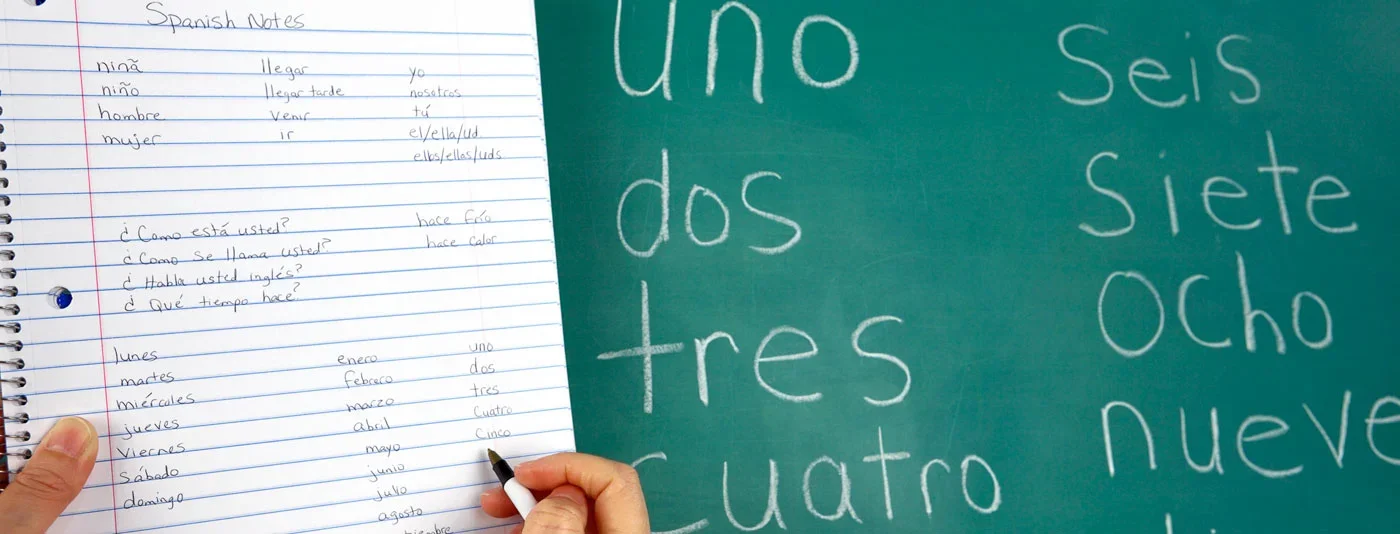 Spanish Notes
ninã
niño
hombre
mujer
llegar
llegar tarde
venir
ir
yo
nosotros
tú
el/ella/ud.
ellos/ellas/uds.
¿ Como está usted?
¿ Como se llama usted?
¿ Habla usted inglés?
¿ Qué tiempo hace?
hace frío
hace calor
lunes
martes
miércoles
jueves
viernes
sábado
domingo
enero
febrero
marzo
abril
mayo
junio
julio
agosto
uno
dos
tres
cuatro
cinco
uno
dos
tres
cuatro
seis
siete
ocho
nueve